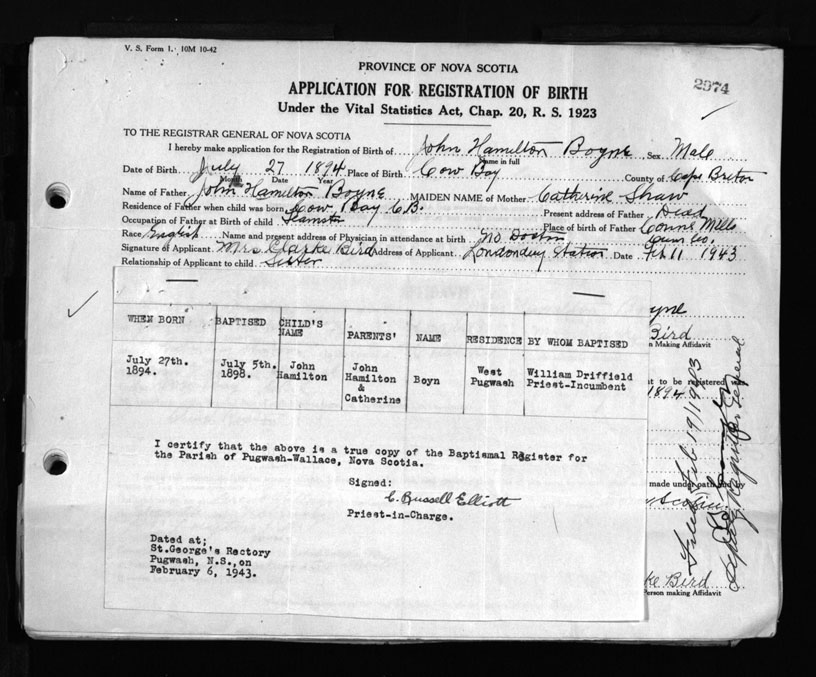 V. S. Form 1. 10M 10-42
PROVINCE OF NOVA SCOTIA
2974
APPLICATION FOR REGISTRATION OF BIRTH
Under the Vital Statistics Act, Chap. 20, R. S. 1923
TO THE REGISTRAR GENERAL OF NOVA SCOTIA
I hereby make application for the Registration of Birth of John Hamilton Boyne Sex Male
Name in full
Date of Birth July 27 1894 Place of Birth Cow Bay County of Cape Breton
Month Date Year
Name of Father John Hamilton Boyne MAIDEN NAME of Mother Catherine Shaw
Residence of Father when child was born Cow Bay C.B. Present address of Father Dead
Occupation of Father at Birth of child Place of birth of Father Mills
Race English Name and present address of Physician in attendance at birth no Doctor Co.
Signature of Applicant Mrs. Clarke Bird Address of Applicant Londonderry Station Date Feb 11 1943
Relationship of Applicant to child Sister
WHEN BORN BAPTISED CHILD'S NAME PARENTS' NAME RESIDENCE BY WHOM BAPTISED
July 27th. 1894. July 5th. 1898. John Hamilton John Hamilton & Catherine Boyn West Pugwash William Driffield Priest-Incumbent
I certify that the above is a true copy of the Baptismal Register for
the Parish of Pugwash-Wallace, Nova Scotia.
Signed:
C. Russell Elliott
Priest-in-Charge.
Dated at;
St.George's Rectory
Pugwash, N.S.,on
February 6, 1943.
yne
Bird
n Making Affidavit
nt to be registered
1894
made under oath
ke Bird
Person making Affidavit
Filed Feb 19/1943
Deputy Registrar General